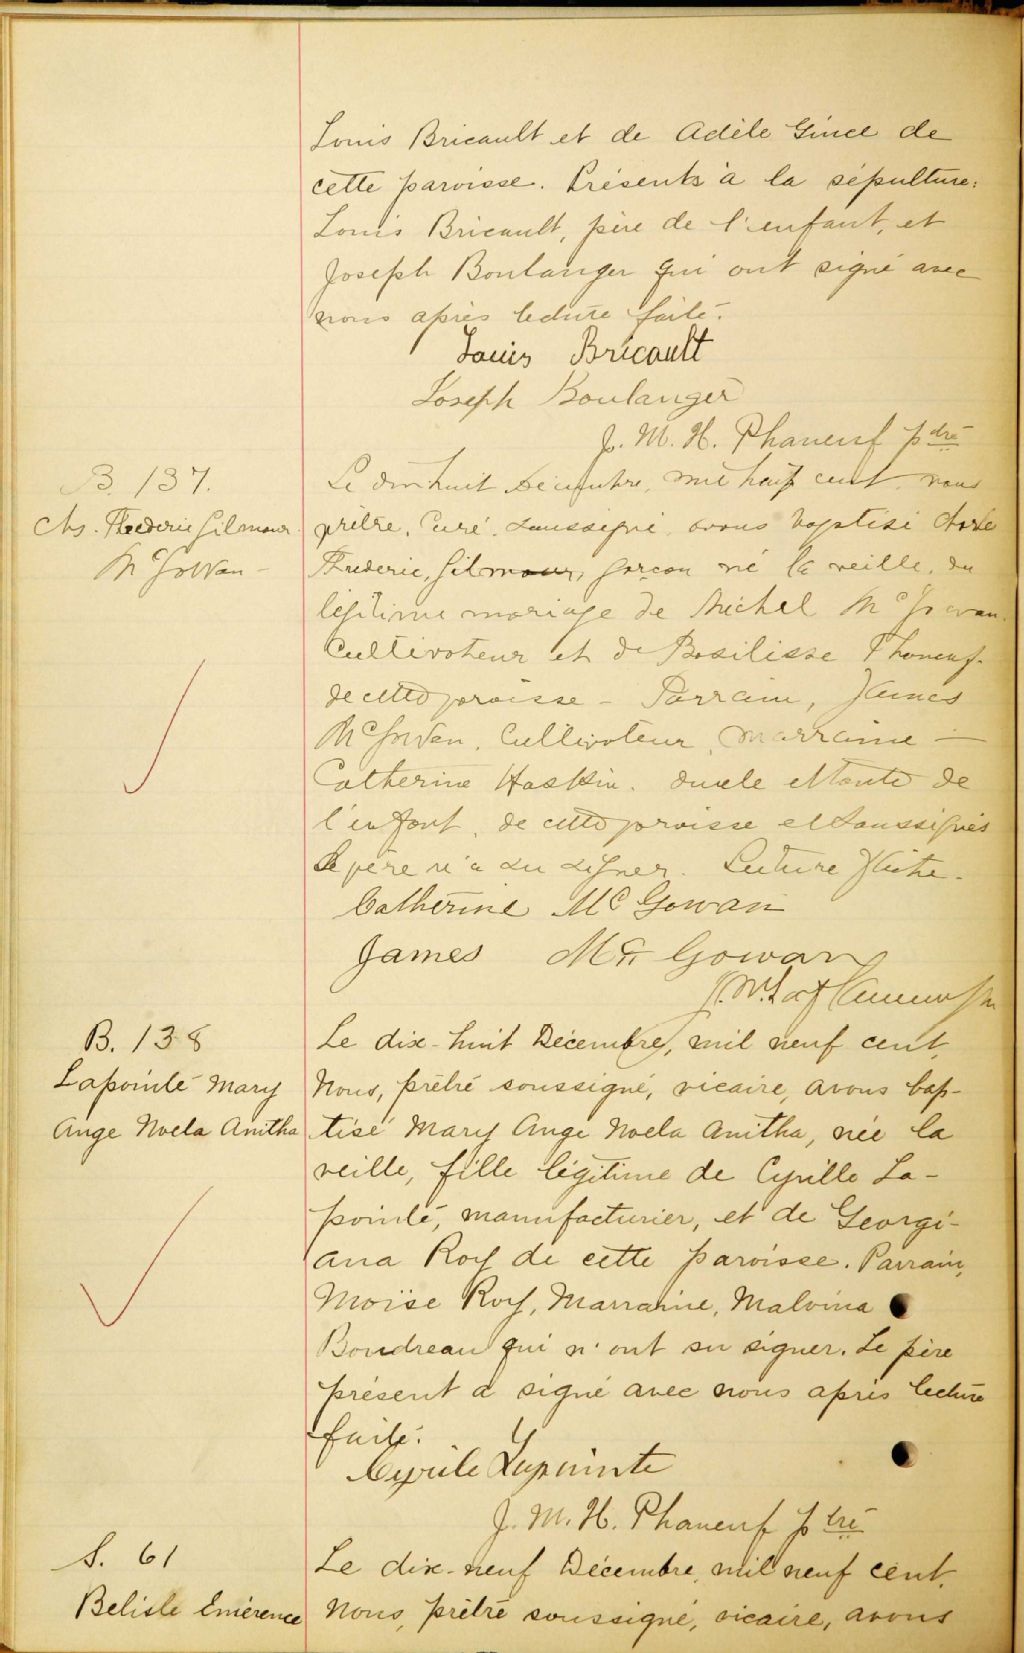 Louis Bricault et de Adèle Gince de
cette paroisse. Présents à la sépulture:
Louis Bricault, père de l'enfant, et
Joseph Boulanger qui ont signé avec
nous après lecture faite.
Louis Bricault
Joseph Boulanger
J. M. H. Phaneuf ptre
B. 137.
Chs. Frederic Gilmour
McGowan -
Le dix huit Décembre, mil neuf cent, nous
prêtre, Curé, soussigné avons baptisé
Frederic, Gilmour, garçon né la veille, du
légitime mariage de Michel McGowan
Cultivateur et de Basilisse Phaneuf.
de cette paroisse - Parrain, James
McGowan, Cultivateur, marraine -
Catherine Haskin. oncle et tante de
l'enfant, de cette paroisse et soussignés
Le père n'a su signer. Lecture faite.
Catherine Mc Gowan
James Mc Gowan
B. 138
Lapointe Mary
Ange Noela Anitha
Le dix-huit Décembre, mil neuf cent,
Nous, prêtre soussigné, vicaire, avons bap-
tisé Mary Ange Noela Anitha, née la
veille, fille légitime de Cyrille La-
pointe, manufacturier, et de Georgi-
ana Roy de cette paroisse. Parrain,
Moïse Roy, Marraine, Malvina
Boudreau qui n'ont su signer. Le père
présent a signé avec nous après lecture
faite.
Cyrile Lapointe
J. M. H. Phaneuf ptre
S. 61
Belisle Emérence
Le dix-neuf Décembre, mil neuf cent,
Nous, prêtre soussigné, vicaire, avons